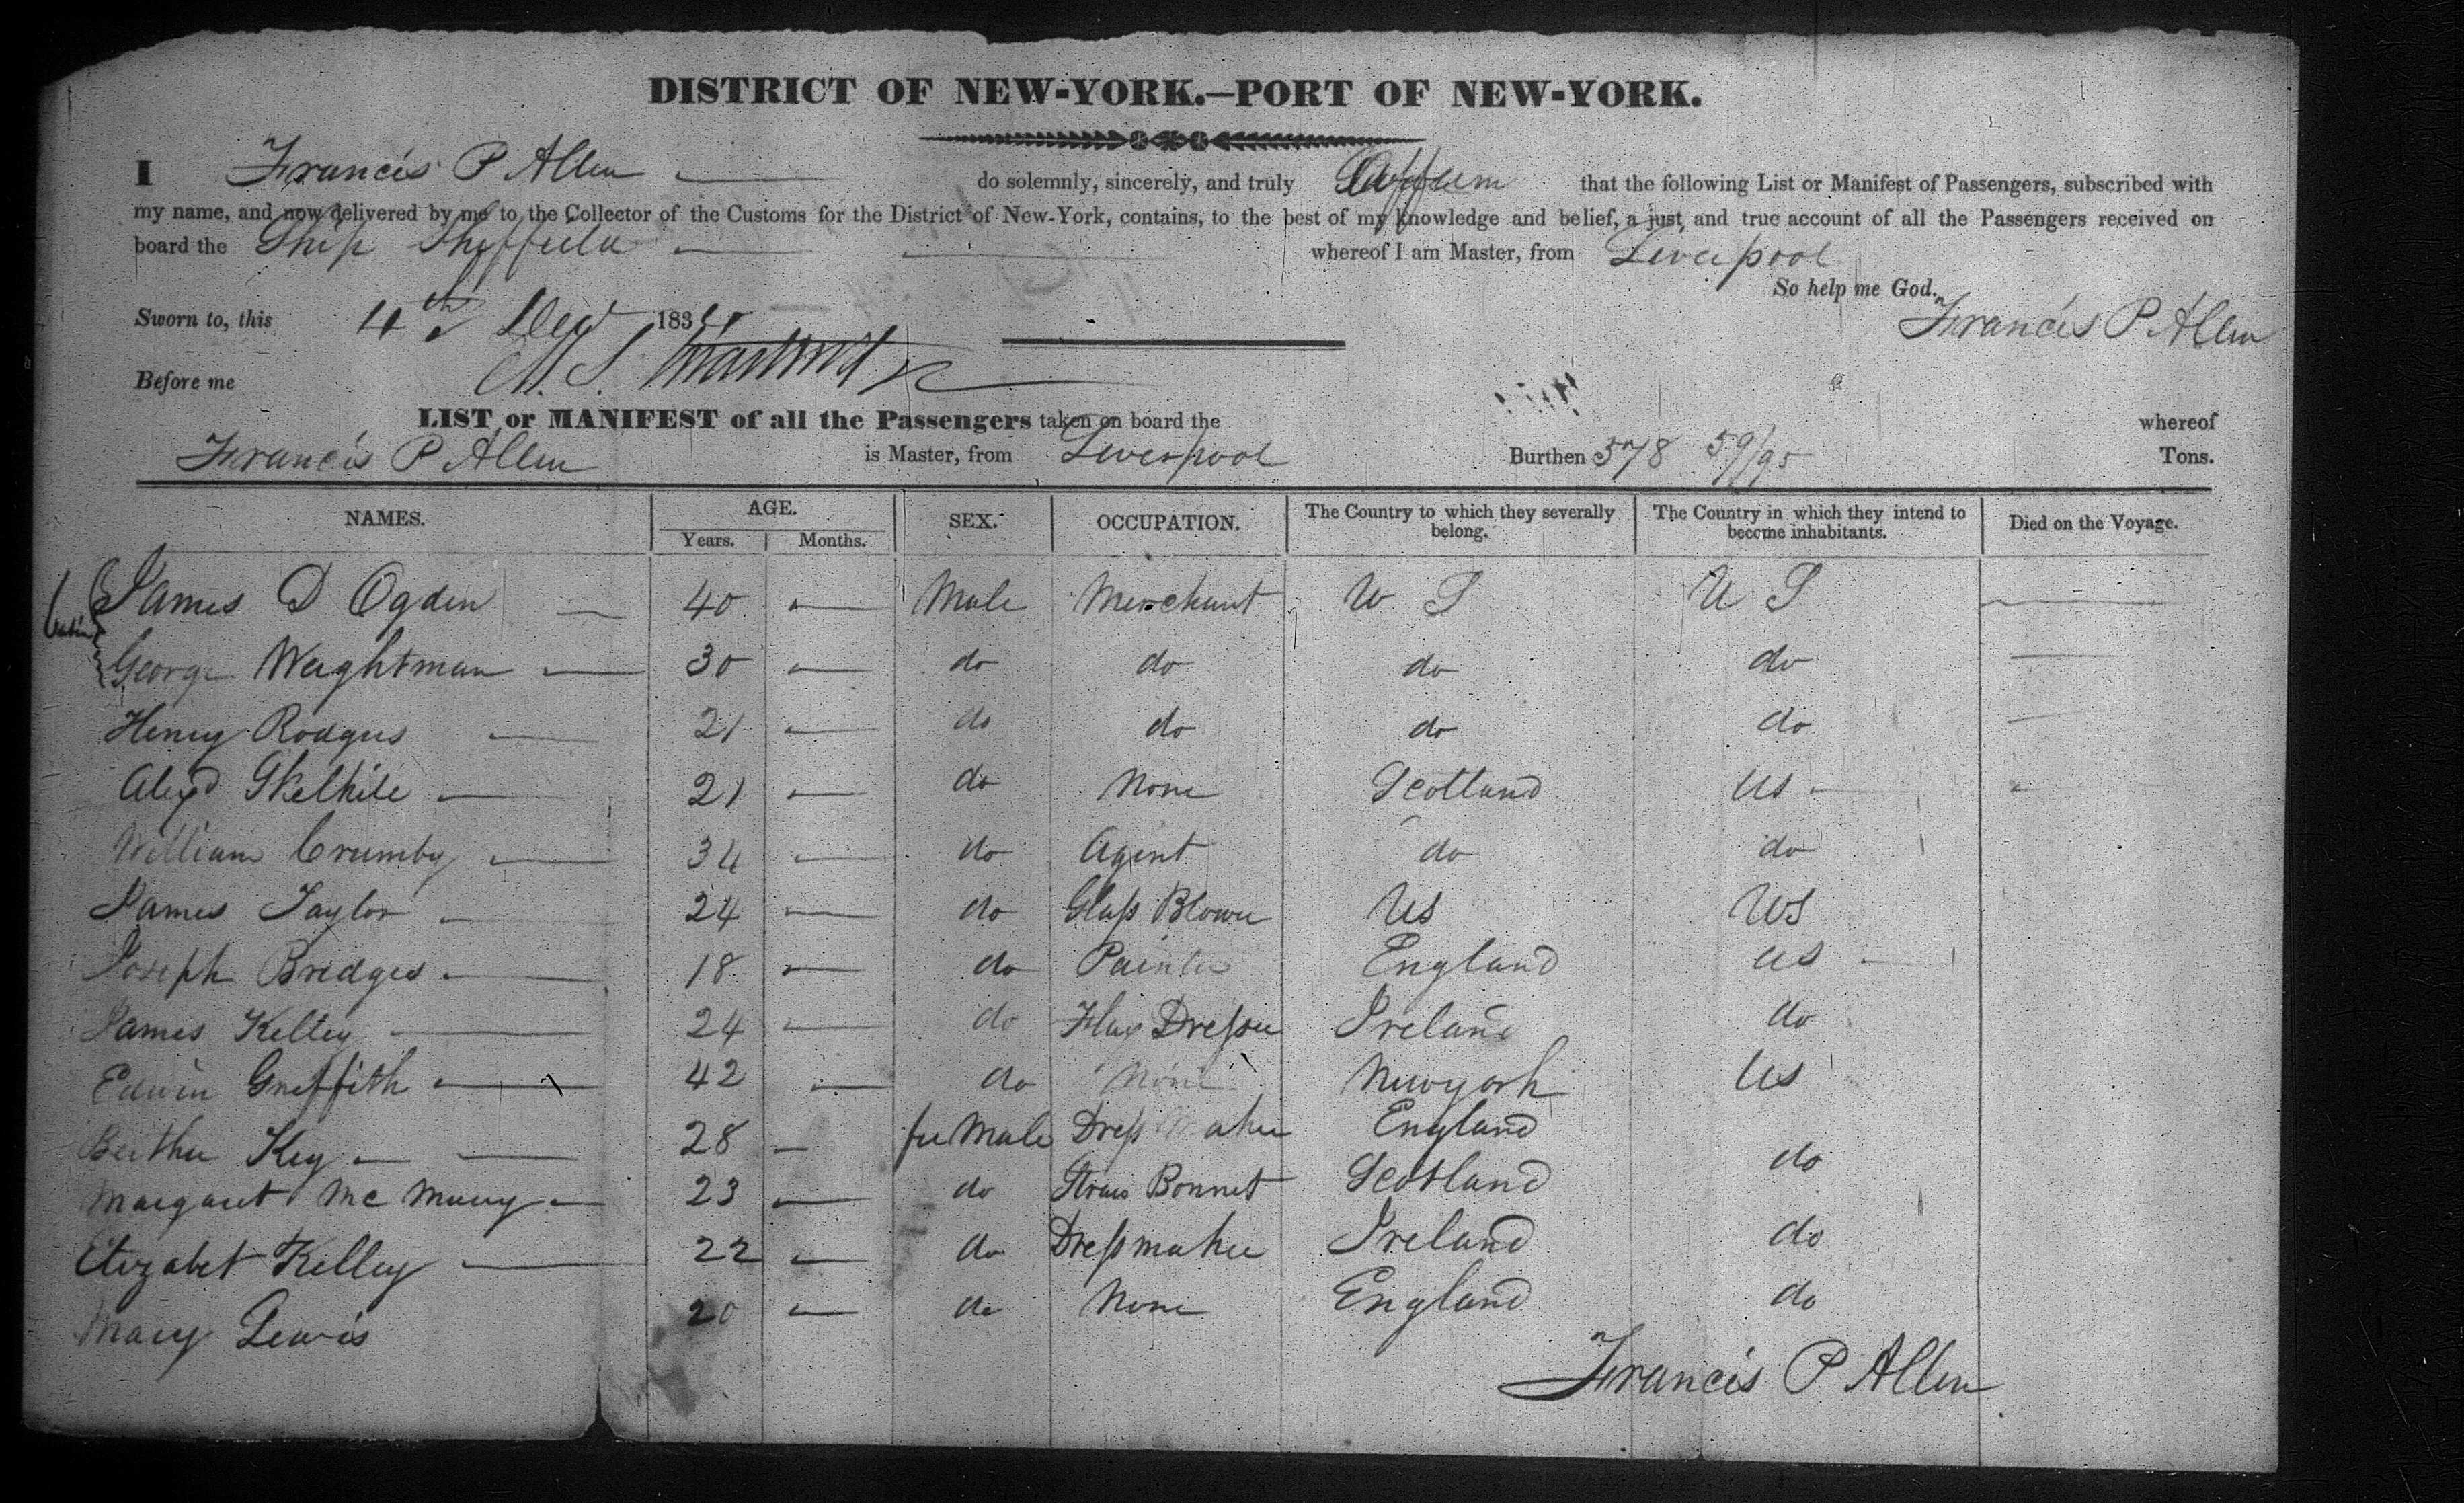 DISTRICT OF NEW-YORK.—PORT OF NEW-YORK.
I Francis P Allen do solemnly, sincerely, and truly Affirm that the following List or Manifest of Passengers, subscribed with
my name, and now delivered by me to the Collector of the Customs for the District of New-York, contains, to the best of my knowledge and belief, a just and true account of all the Passengers received on
board the Ship Sheffield whereof I am Master, from Liverpool
So help me God.
Sworn to, this 4th Decr 183 Francis P Allen
Before me
LIST or MANIFEST of all the Passengers taken on board the whereof
Francis P Allen is Master, from Liverpool Burthen 578 59/95 Tons.
NAMES. AGE. SEX. OCCUPATION. The Country to which they severally belong. The Country in which they intend to become inhabitants. Died on the Voyage.
Years. Months.
Cabin
James D Ogden — 40 — Male Merchant U S U S —
George Weightman — 30 — do do do do —
Henry Rodgers — 21 — do do do do —
Alexd — 21 — do None Scotland US - -
William Crumby — 34 — do Agent do do
James Taylor — 24 — do Glass Blower US US
Joseph Bridges — 18 — do Painter England US -
James Kelley — 24 — do Flax Dresser Ireland do
Edwin Griffith — 42 — do None Newyork US
Bertha Key — 28 — fe Male Dress Maker England
Margaret Mc — 23 — do Straw Bonnet Scotland do
Elizabet Kelley — 22 — do Dressmaker Ireland do
Mary Lewis 20 — do None England do
Francis P Allen